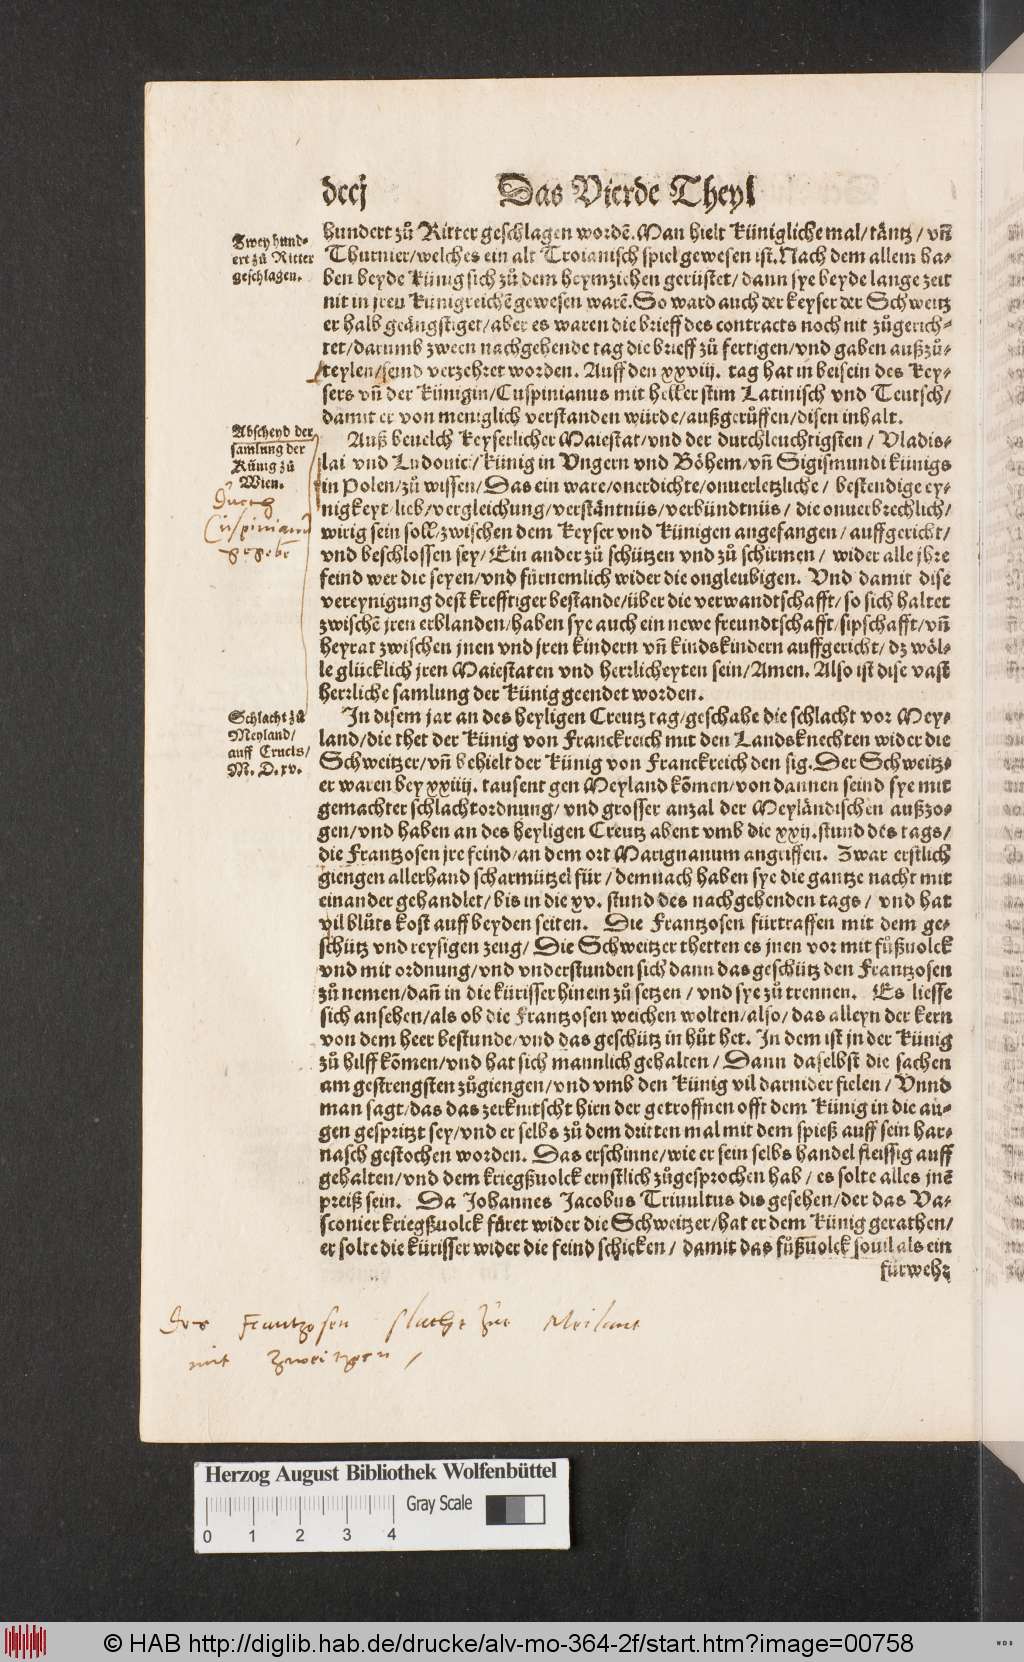 dccj Das Vierde Theyl
Zwey hund-
ert zů Ritter
geschlagen.
hundert zů Ritter geschlagen wordẽ. Man hielt künigliche mal/ täntz / vñ
Thurnier/ welches ein alt Troianisch spiel gewesen ist. Nach dem allem ha-
ben beyde Künig sich zů dem heymziehen gerüstet/ dann sye beyde lange zeit
nit in jren Künigreichẽ gewesen warẽ. So ward auch der keyser der Schweitz
er halb geängstiget/ aber es waren die brieff des contracts noch nit zůgerich-
tet/ darumb zween nachgehende tag die brieff zů fertigen/ vnd gaben außzů-
teylen/ seind verzehret worden. Auff den xxviij. tag hat in beisein des Key-
sers vñ der Künigin/ Cuspinianus mit heller stim Latinisch vnd Teutsch/
damit er von meniglich verstanden würde/ außgerůffen/ disen inhalt.
Abscheyd der
samlung der
Künig zů
Wien.
Durch
Cuspinianu
gegebẽ
Auß beuelch Keyserlicher Maiestat/ vnd der durchleuchtigsten / Vladis-
lai vnd Ludouici/ Künig in Vngern vnd Böhem/ vñ Sigismundi künigs
in Polen/ zů wissen/ Das ein ware/ onerdichte/ onuerletzliche / bestendige ey-
nigkeyt/ lieb/ vergleichung/ verstäntnüs/ verbündtnüs / die onuerbrechlich/
wirig sein soll/ zwischen dem Keyser vnd Künigen angefangen / auffgericht/
vnd beschlossen sey/ Ein ander zů schützen vnd zů schirmen / wider alle jhre
feind wer die seyen/ vnd fürnemlich wider die ongleubigen. Vnd damit dise
vereynigung dest krefftiger bestande/ über die verwandtschafft/ so sich haltet
zwischẽ jren erblanden/ haben sye auch ein newe freundtschafft/ sipschafft/ vñ
heyrat zwischen jnen vnd jren kindern vñ kindskindern auffgericht/ dz wöl-
le glücklich jren Maiestaten vnd herrlicheyten sein/ Amen. Also ist dise vast
herrliche samlung der Künig geendet worden.
Schlacht zů
Meyland/
auff Crucis/
M. D. xv.
In disem jar an des heyligen Creutz tag/ geschahe die schlacht vor Mey-
land/ die thet der Künig von Franckreich mit den Landsknechten wider die
Schweitzer/ vñ behielt der Künig von Franckreich den sig. Der Schweitz-
er waren bey xxiiij. tausent gen Meyland kõmen/ von dannen seind sye mit
gemachter schlachtordnung/ vnd grosser anzal der Meyländischen außzo-
gen/ vnd haben an des heyligen Creutz abent vmb die xxij. stund des tags/
die Frantzosen jre feind/ an dem ort Marignanum angriffen. Zwar erstlich
giengen allerhand scharmützel für / demnach haben sye die gantze nacht mit
einander gehandlet/ bis in die xv. stund des nachgehenden tags / vnd hat
vil blůts kost auff beyden seiten. Die Frantzosen fürtraffen mit dem ge-
schütz vnd reysigen zeug/ Die Schweitzer thetten es jnen vor mit fůßuolck
vnd mit ordnung/ vnd vnderstunden sich dann das geschütz den Frantzosen
zů nemen/ dañ in die kürisser hinein zů setzen / vnd sye zů trennen. Es liesse
sich ansehen/ als ob die Frantzosen weichen wolten/ also/ das alleyn der kern
von dem heer bestunde/ vnd das geschütz in hůt het. In dem ist jn der Künig
zů hilff kõmen/ vnd hat sich mannlich gehalten / Dann daselbst die sachen
am gestrengsten zůgiengen/ vnd vmb den Künig vil darnider fielen / Vnnd
man sagt/ das das zerknitscht hirn der getroffnen offt dem Künig in die au-
gen gespritzt sey/ vnd er selbs zů dem dritten mal mit dem spieß auff sein har-
nasch gestochen worden. Das erschinne/ wie er sein selbs handel fleissig auff
gehalten/ vnd dem kriegßuolck ernstlich zůgesprochen hab / es solte alles jnẽ
preiß sein. Da Johannes Jacobus Triuultus dis gesehen/ der das Va-
sconier kriegßuolck füret wider die Schweitzer/ hat er dem Künig gerathen/
er solte die kürisser wider die feind schicken / damit das fůßuolck souil als ein
fürwehr
Der Frantzosen slacht zu Meilant
mit Zweitzern /
Herzog August Bibliothek Wolfenbüttel
Gray Scale
0 1 2 3 4
© HAB http://diglib.hab.de/drucke/alv-mo-364-2f/start.htm?image=00758